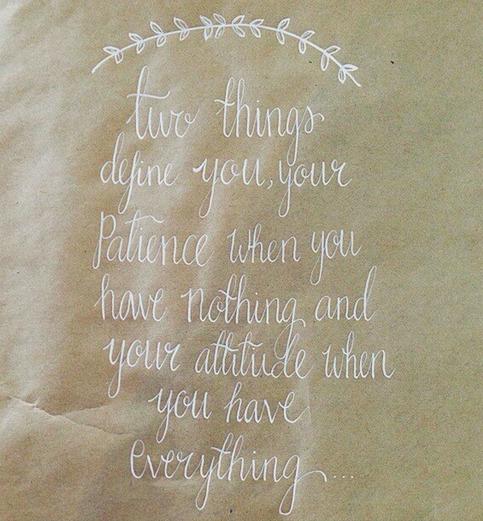 two things
define you, your
Patience when you
have nothing and
your attitude when
you have
everything...